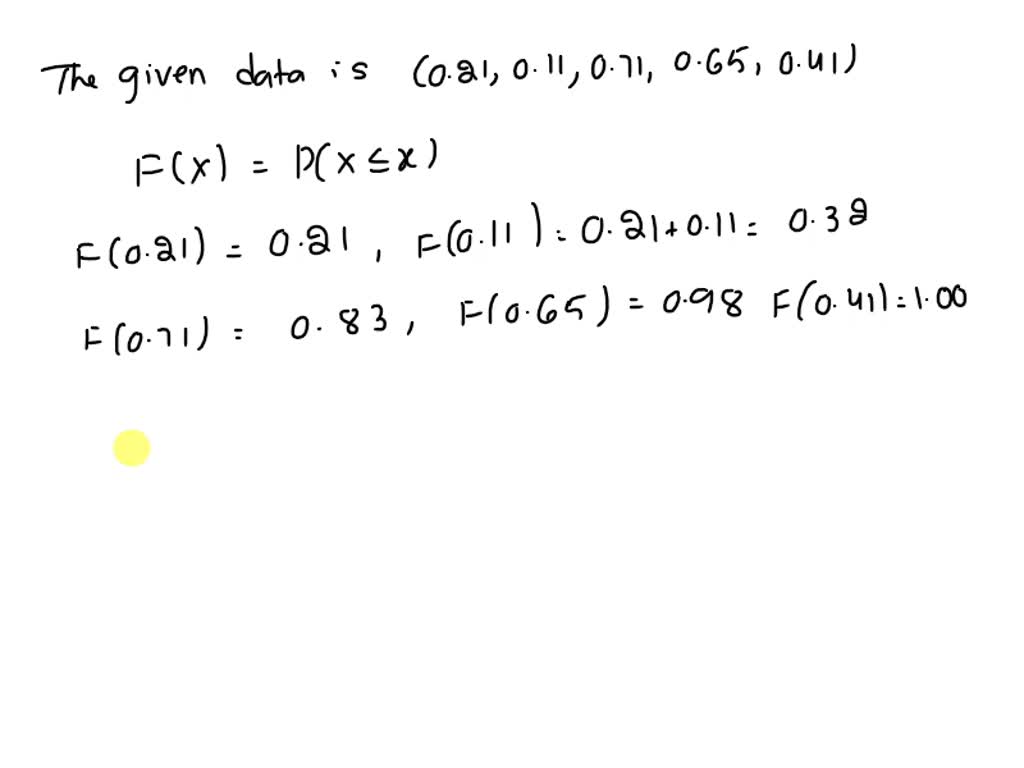 The given data is (0.21, 0.11, 0.71, 0.65, 0.41)
F(x) = P(x ≤ x)
F(0.21) = 0.21, F(0.11) = 0.21+0.11 = 0.32
F(0.71) = 0.83, F(0.65) = 0.98 F(0.41) = 1.00